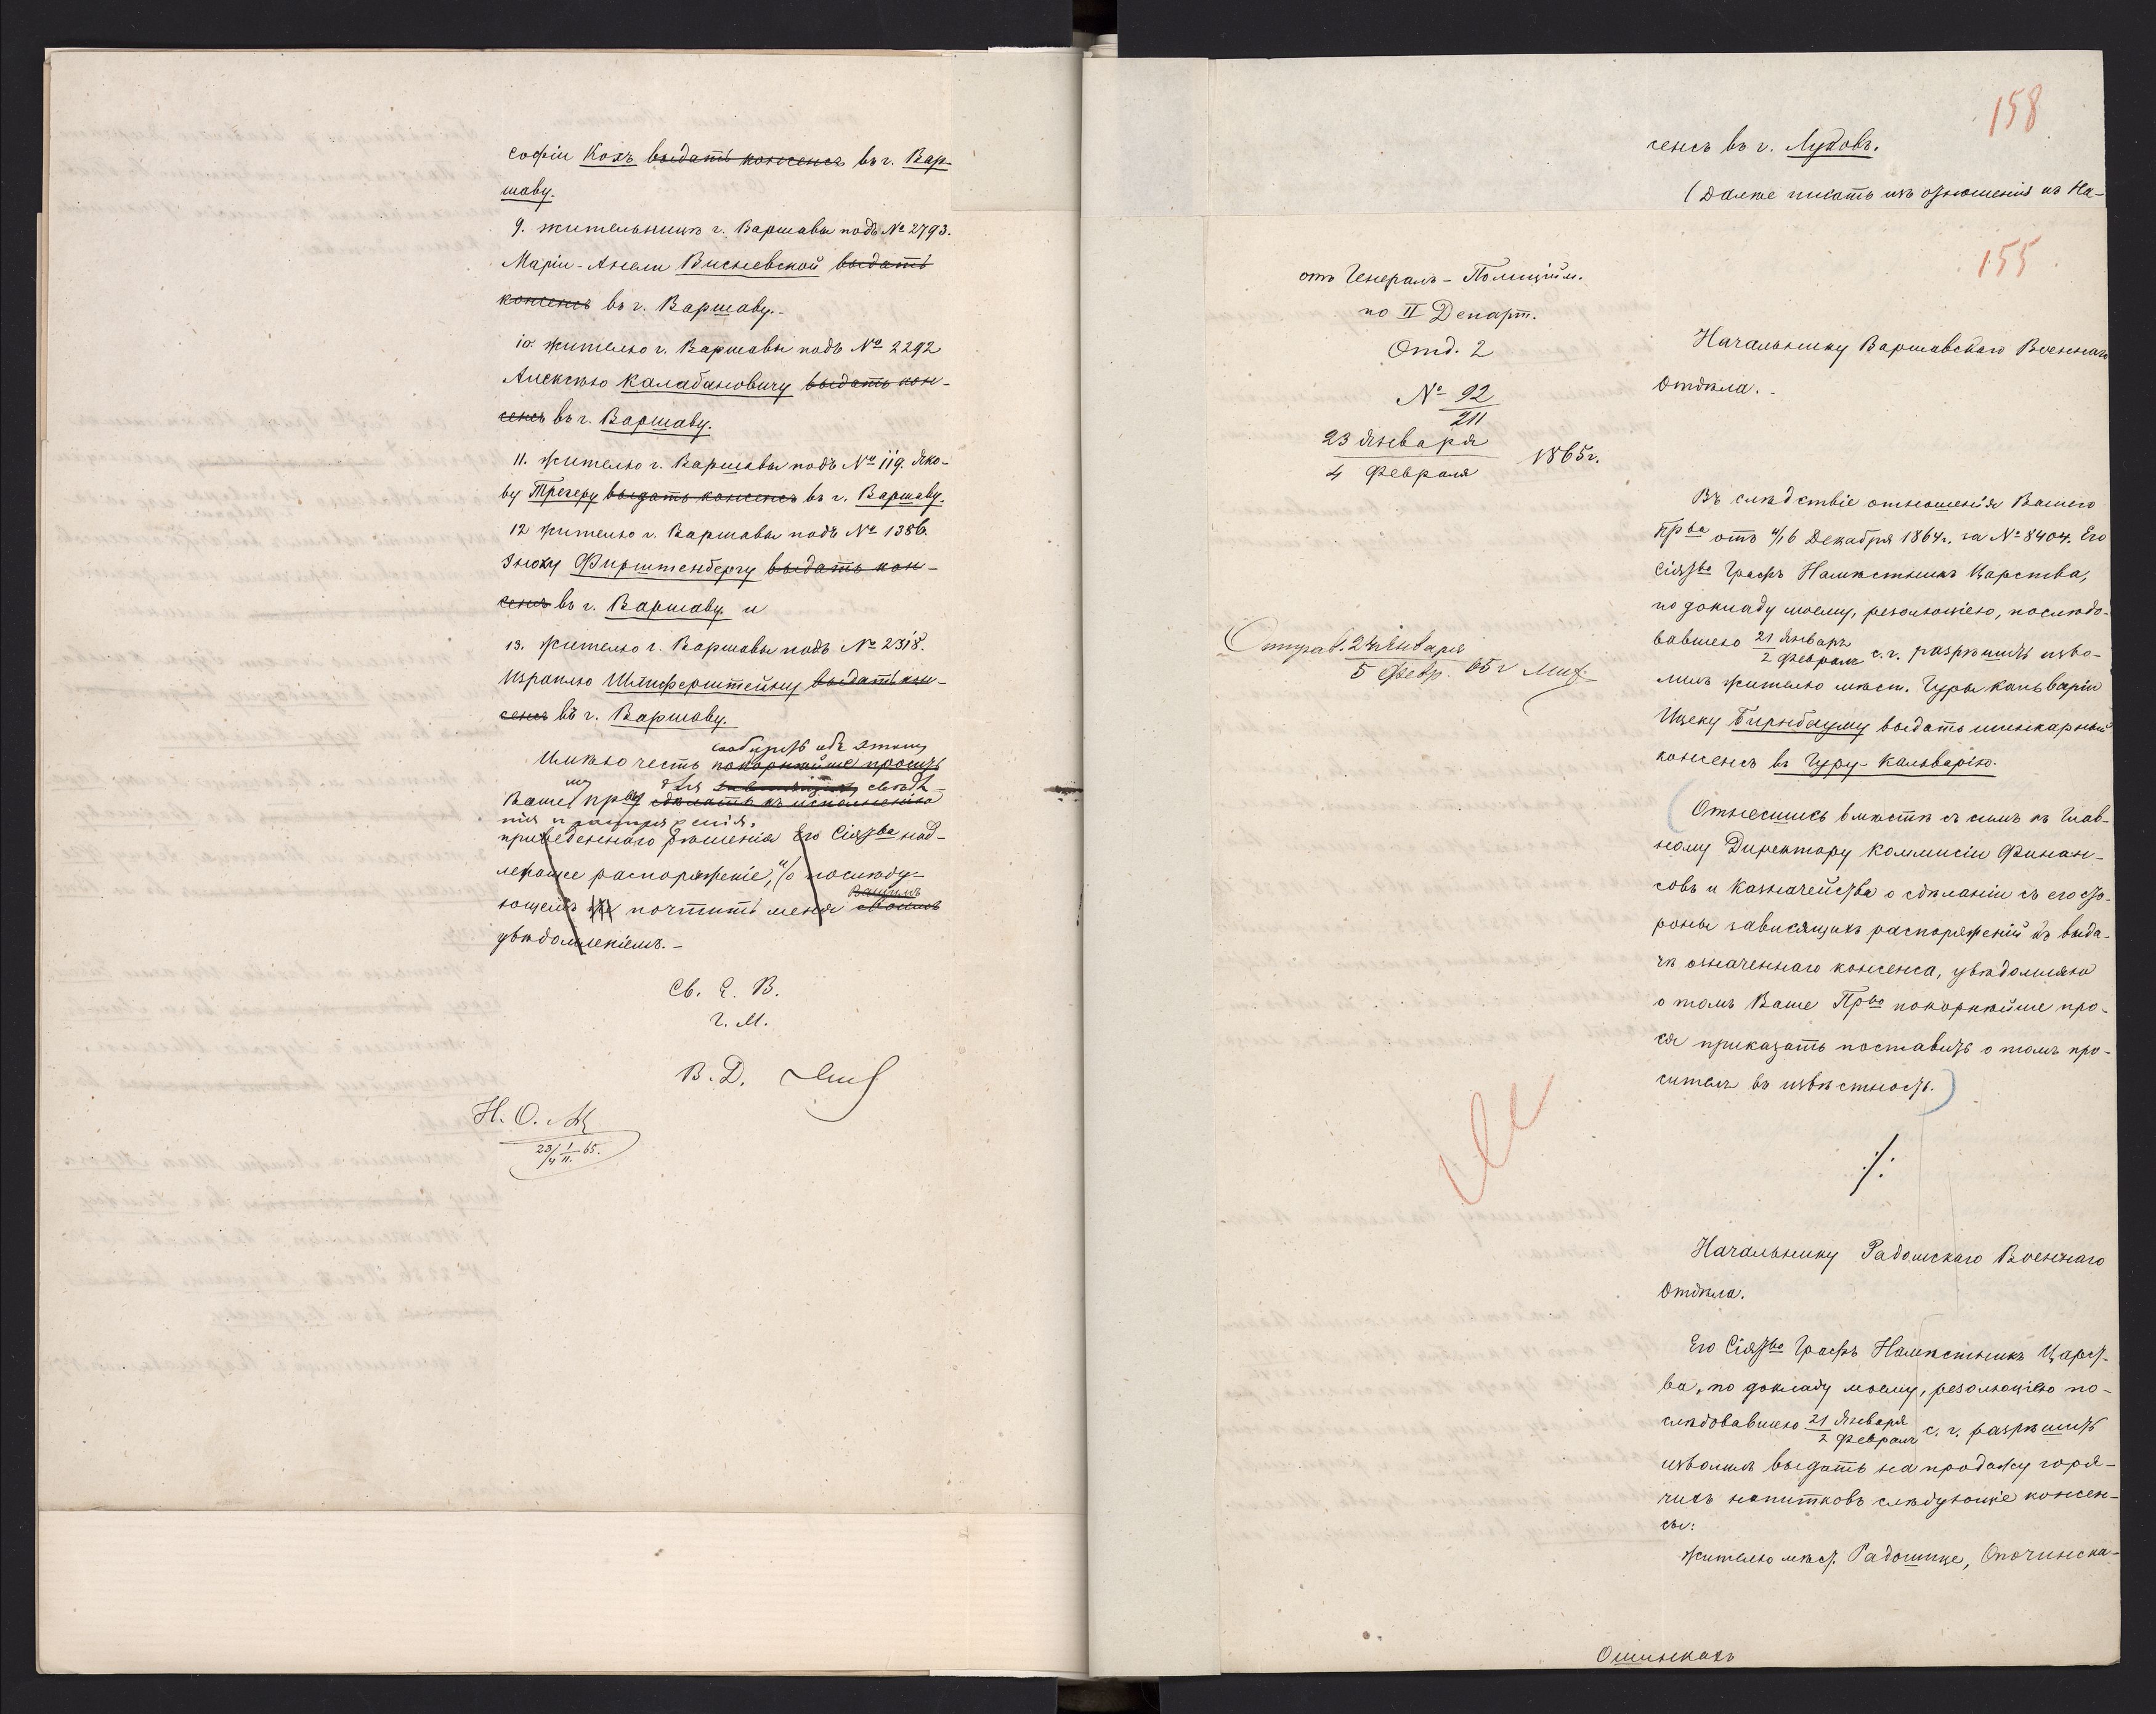 Софіи Кохъ выдать консенсъ въ г. Вар-
шаву.
9. жительницѣ г. Варшавы подъ № 2793.
Маріи-Анели Висневской выдать
консенсъ въ г. Варшаву.-
10. жителю г. Варшавы подъ № 2292
Алексѣю Калабановичу выдать кон-
сенсъ въ г. Варшаву.
11. жителю г. Варшавы подъ № 119. Яко-
ву Трегеру выдать консенсъ въ г. Варшаву.
12 жителю г. Варшавы подъ № 1386.
Эноху Фирштенбергу выдать кон-
сенсъ въ г. Варшаву и
13. жителю г. Варшавы подъ № 2318.
Израилю Шлиферштейну выдать кон-
сенсъ въ г. Варшаву.
сообщить объ этомъ
Имѣю честь покорнѣйше просить
для свѣдѣ-
Ваше Пр-ву сдѣлать къ исполненію
нія и распоряженія.
приведеннаго рѣшенія Его Сіят-ва над-
лежащее распоряженіе, и о послѣду-
Вашимъ
ющемъ почтить меня своимъ
увѣдомленіемъ.-
Св. Е. В.
Г. М.
В. Д.
Н. О.
23/4 I/II 65.
158
сенсъ въ г. Луковъ.
(Далѣе писать изъ отношенія къ На-
155
отъ Генералъ-Полиційм.
по II Департ.
Отд. 2
№ 92
211
23 Января
4 Февраля 1865 г.
Отправ. 24 Января
5 Февр. 65 г
Начальнику Варшавскаго Военнаго
Отдѣла.-
Въ слѣдствіе отношенія Вашего
Пр-ва отъ 4/16 Декабря 1864 г. за № 8404. Его
Сіят-во Графъ Намѣстникъ Царства,
по докладу моему, резолюціею, послѣдо-
вавшею 21 Январѣ
2 Февралѣ с. г. разрѣшить изво-
лилъ жителю мѣст. Гуры Кальваріи
Ицеку Бирнбауму выдать шинкарный
консенсъ въ Гуру-Кальварію.
Отнесшись вмѣстѣ съ симъ къ Глав-
ному Директору Коммисіи Финан-
совъ и Казначейства о сдѣланіи съ его сто-
роны зависящихъ распоряженій къ выда-
чѣ означеннаго консенса, увѣдомляю
о томъ Ваше Пр-во покорнѣйше про-
ся приказать поставить о томъ про-
сителя въ извѣстность.)
·/.
Начальнику Радомскаго Военнаго
Отдѣла.
Его Сіят-во Графъ Намѣстникъ Царст-
ва, по докладу моему, резолюціею по-
слѣдовавшею 21 Января
2 Февраля с. г. разрѣшить
изволилъ выдать на продажу горя-
чихъ напитковъ слѣдующіе консен-
сы:
жителю мѣст. Радошице, Опочинска-
Ошинскахъ